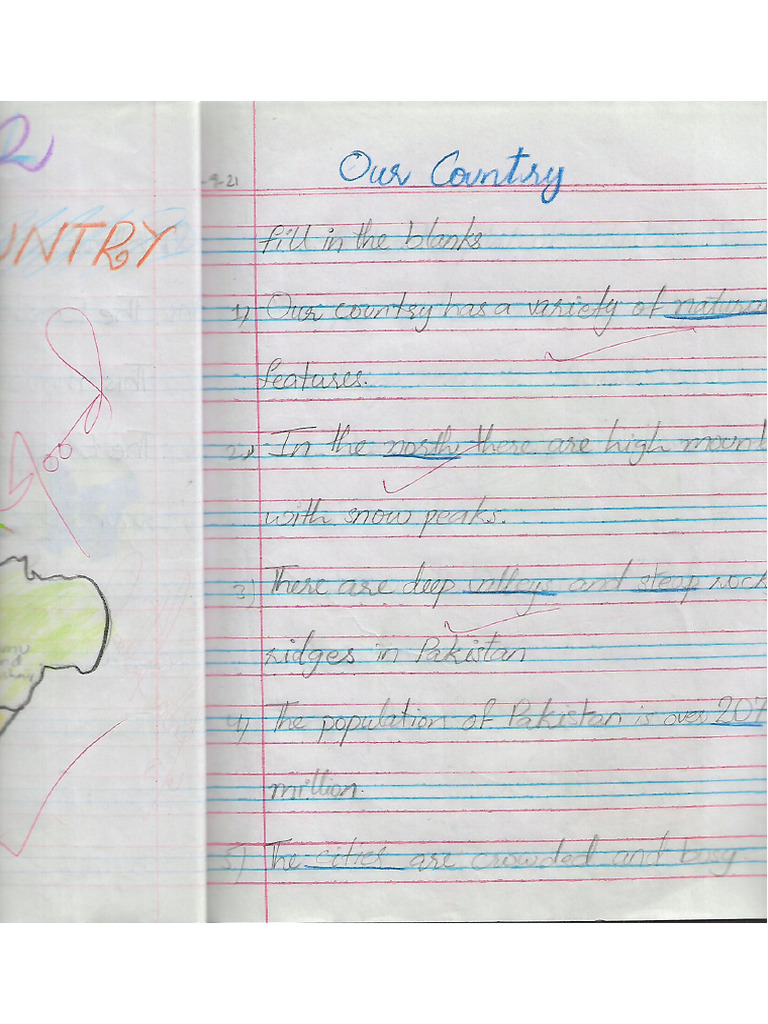 2
UNTRY
Good
-9-21
Our Country
fill in the blanks
1) Our country has a variety of natura
features.
2) In the north there are high mount
with snow peaks.
3) There are deep valleys and steap rock
ridges in Pakistan
4) The population of Pakistan is over 207
million.
5) The cities are crowded and busy
mu
nd